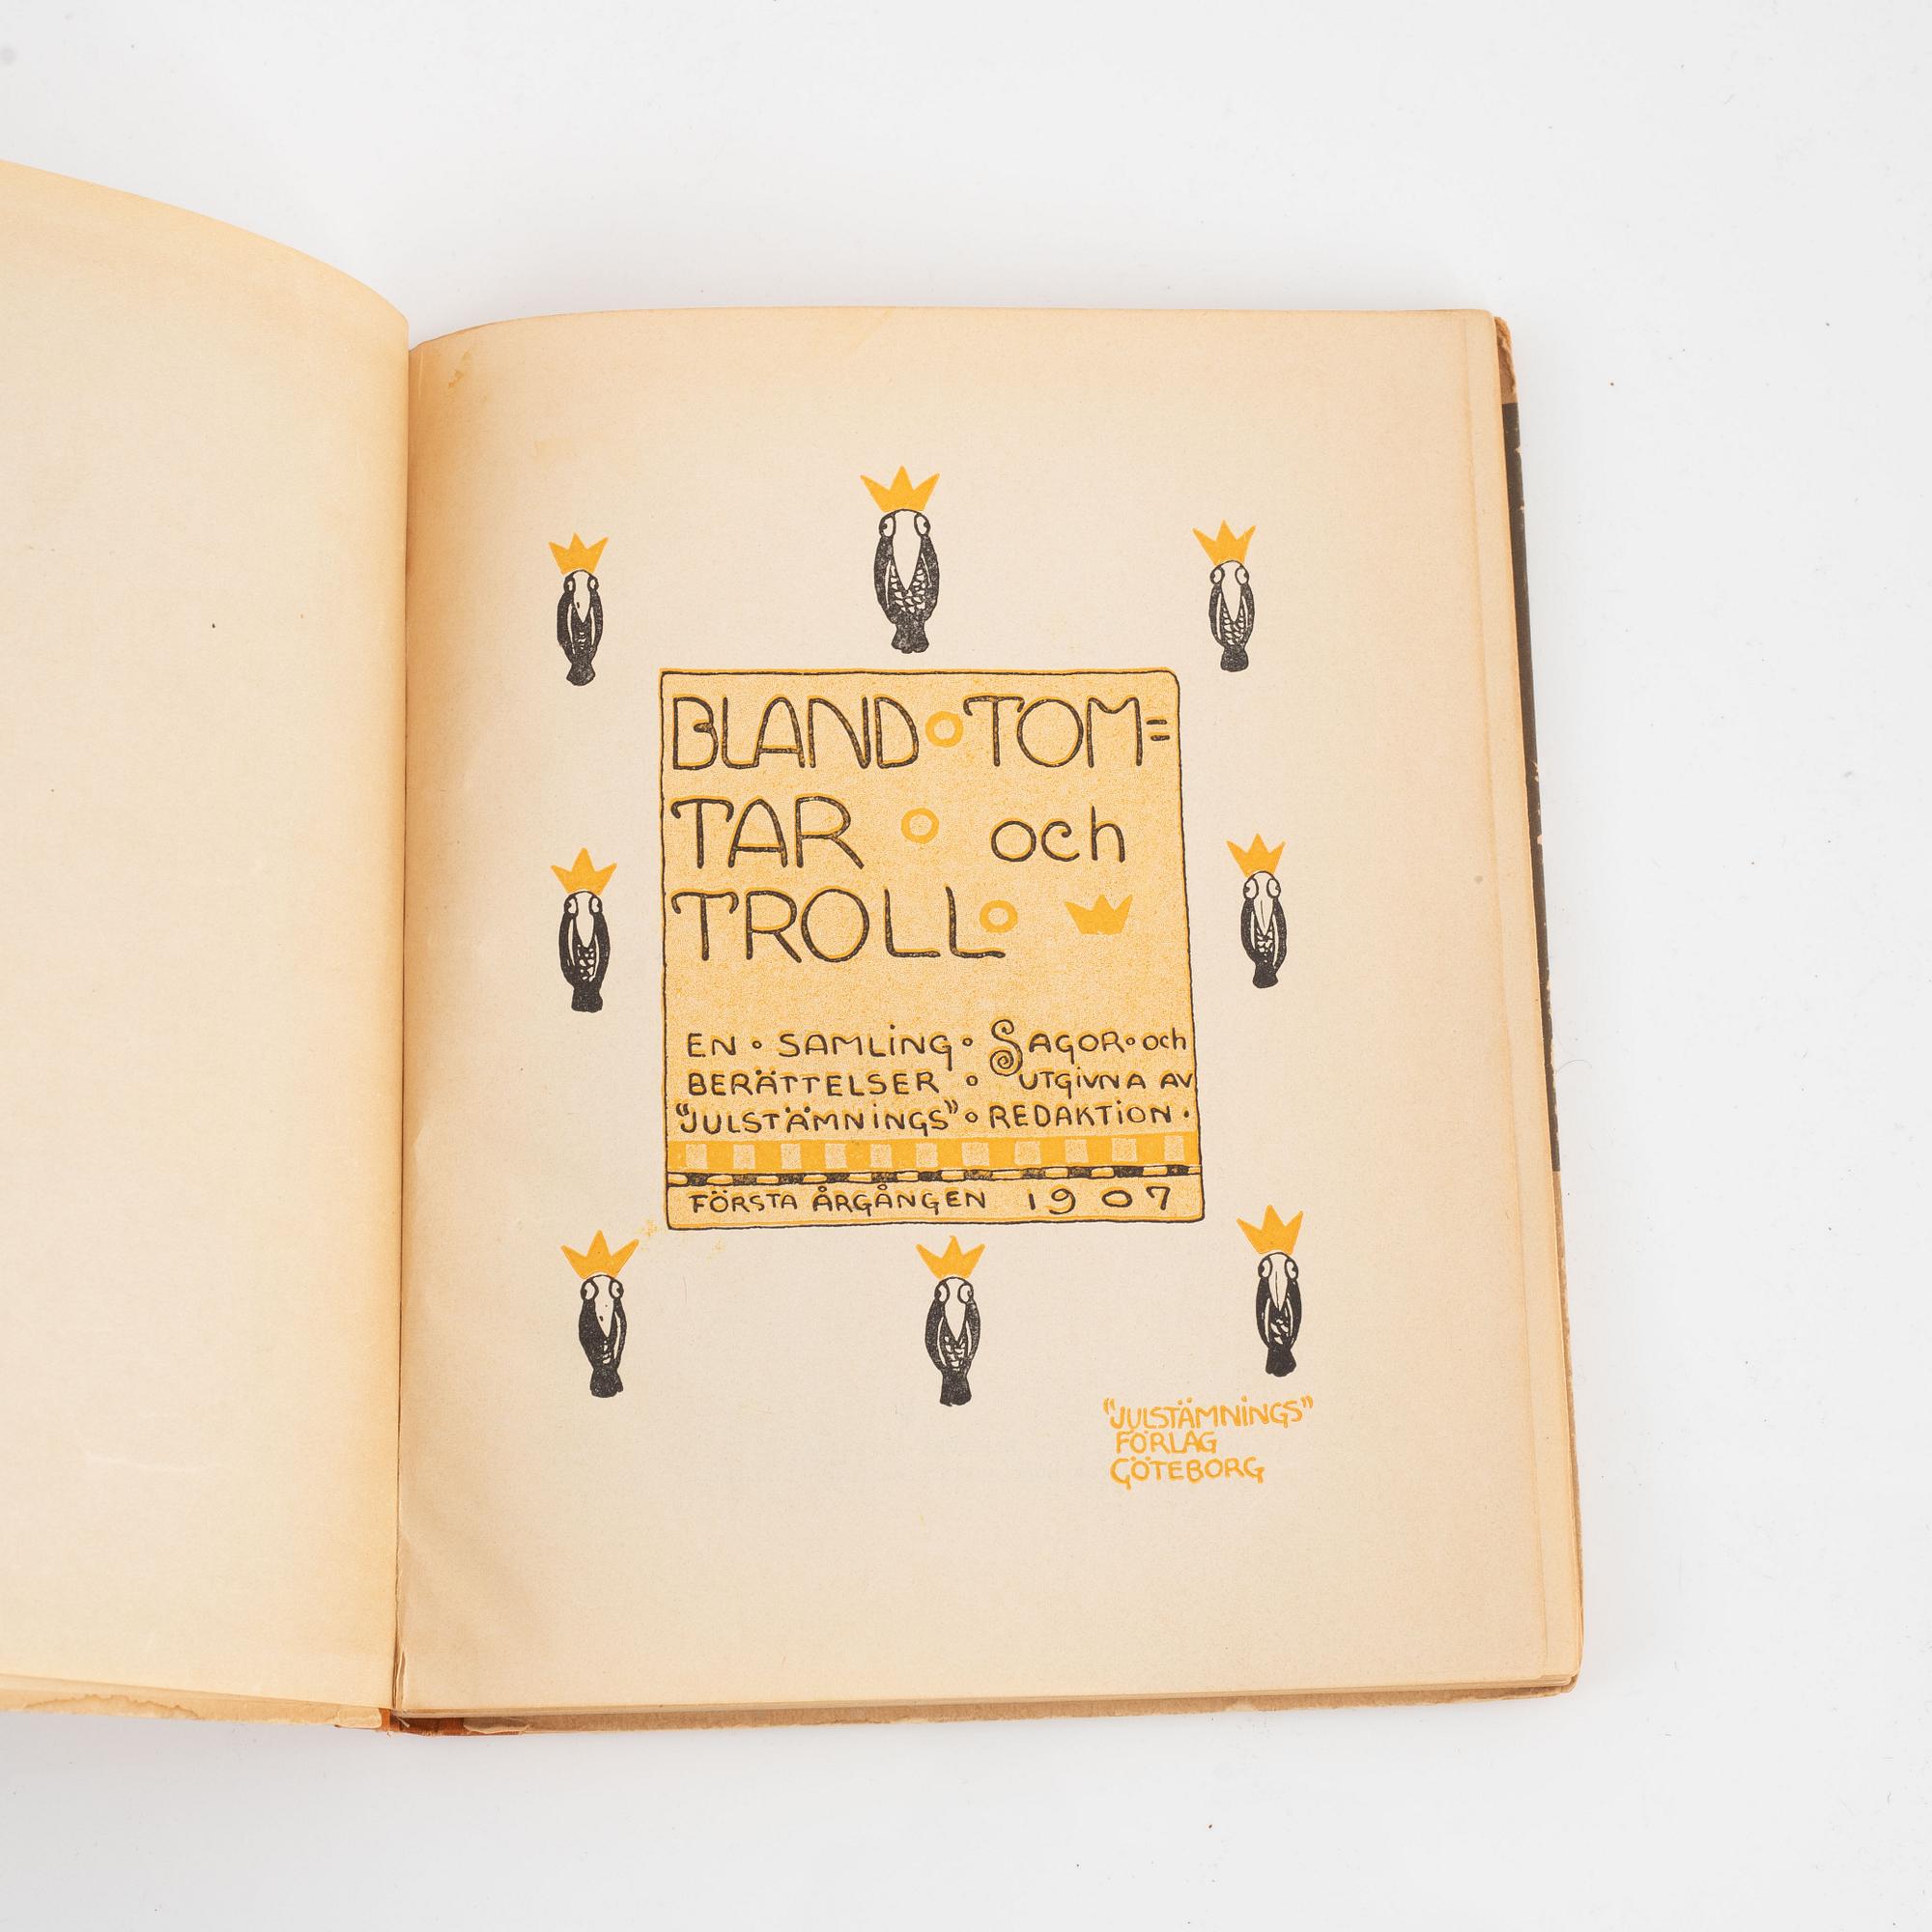 BLAND TOM=
TAR och
TROLL
EN • SAMLING • SAGOR • och
BERÄTTELSER • UTGIVNA AV
"JULSTÄMNINGS" • REDAKTION •
FÖRSTA ÅRGÅNGEN 1907
"JULSTÄMNINGS"
FÖRLAG
GÖTEBORG